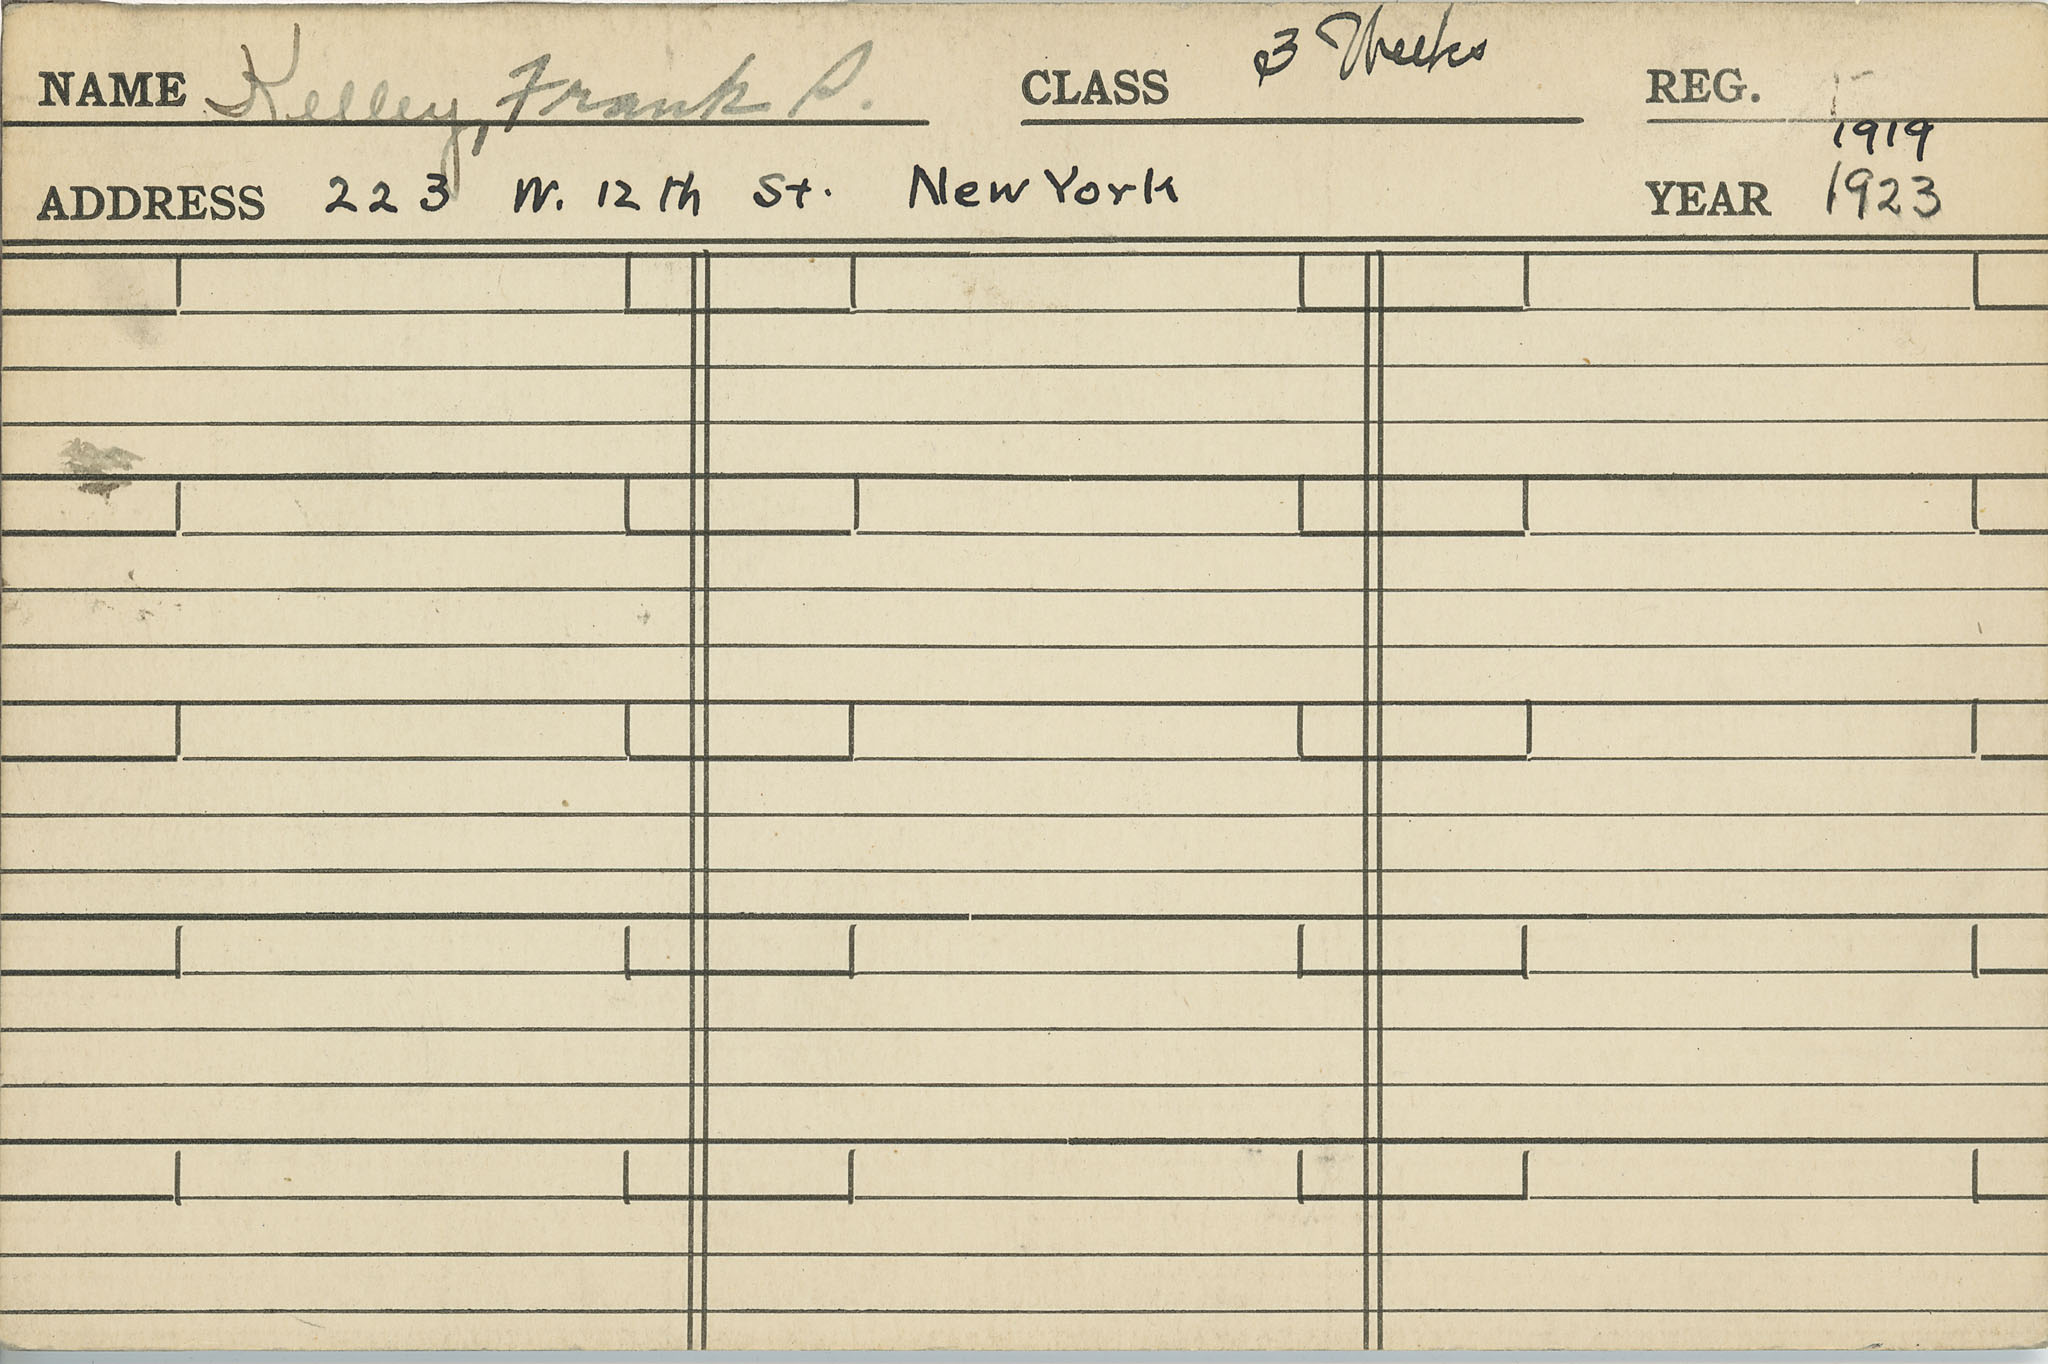 NAME Kelley, Frank P. CLASS 3 Weeks REG.
1919
ADDRESS 223 W. 12th St. New York YEAR 1923